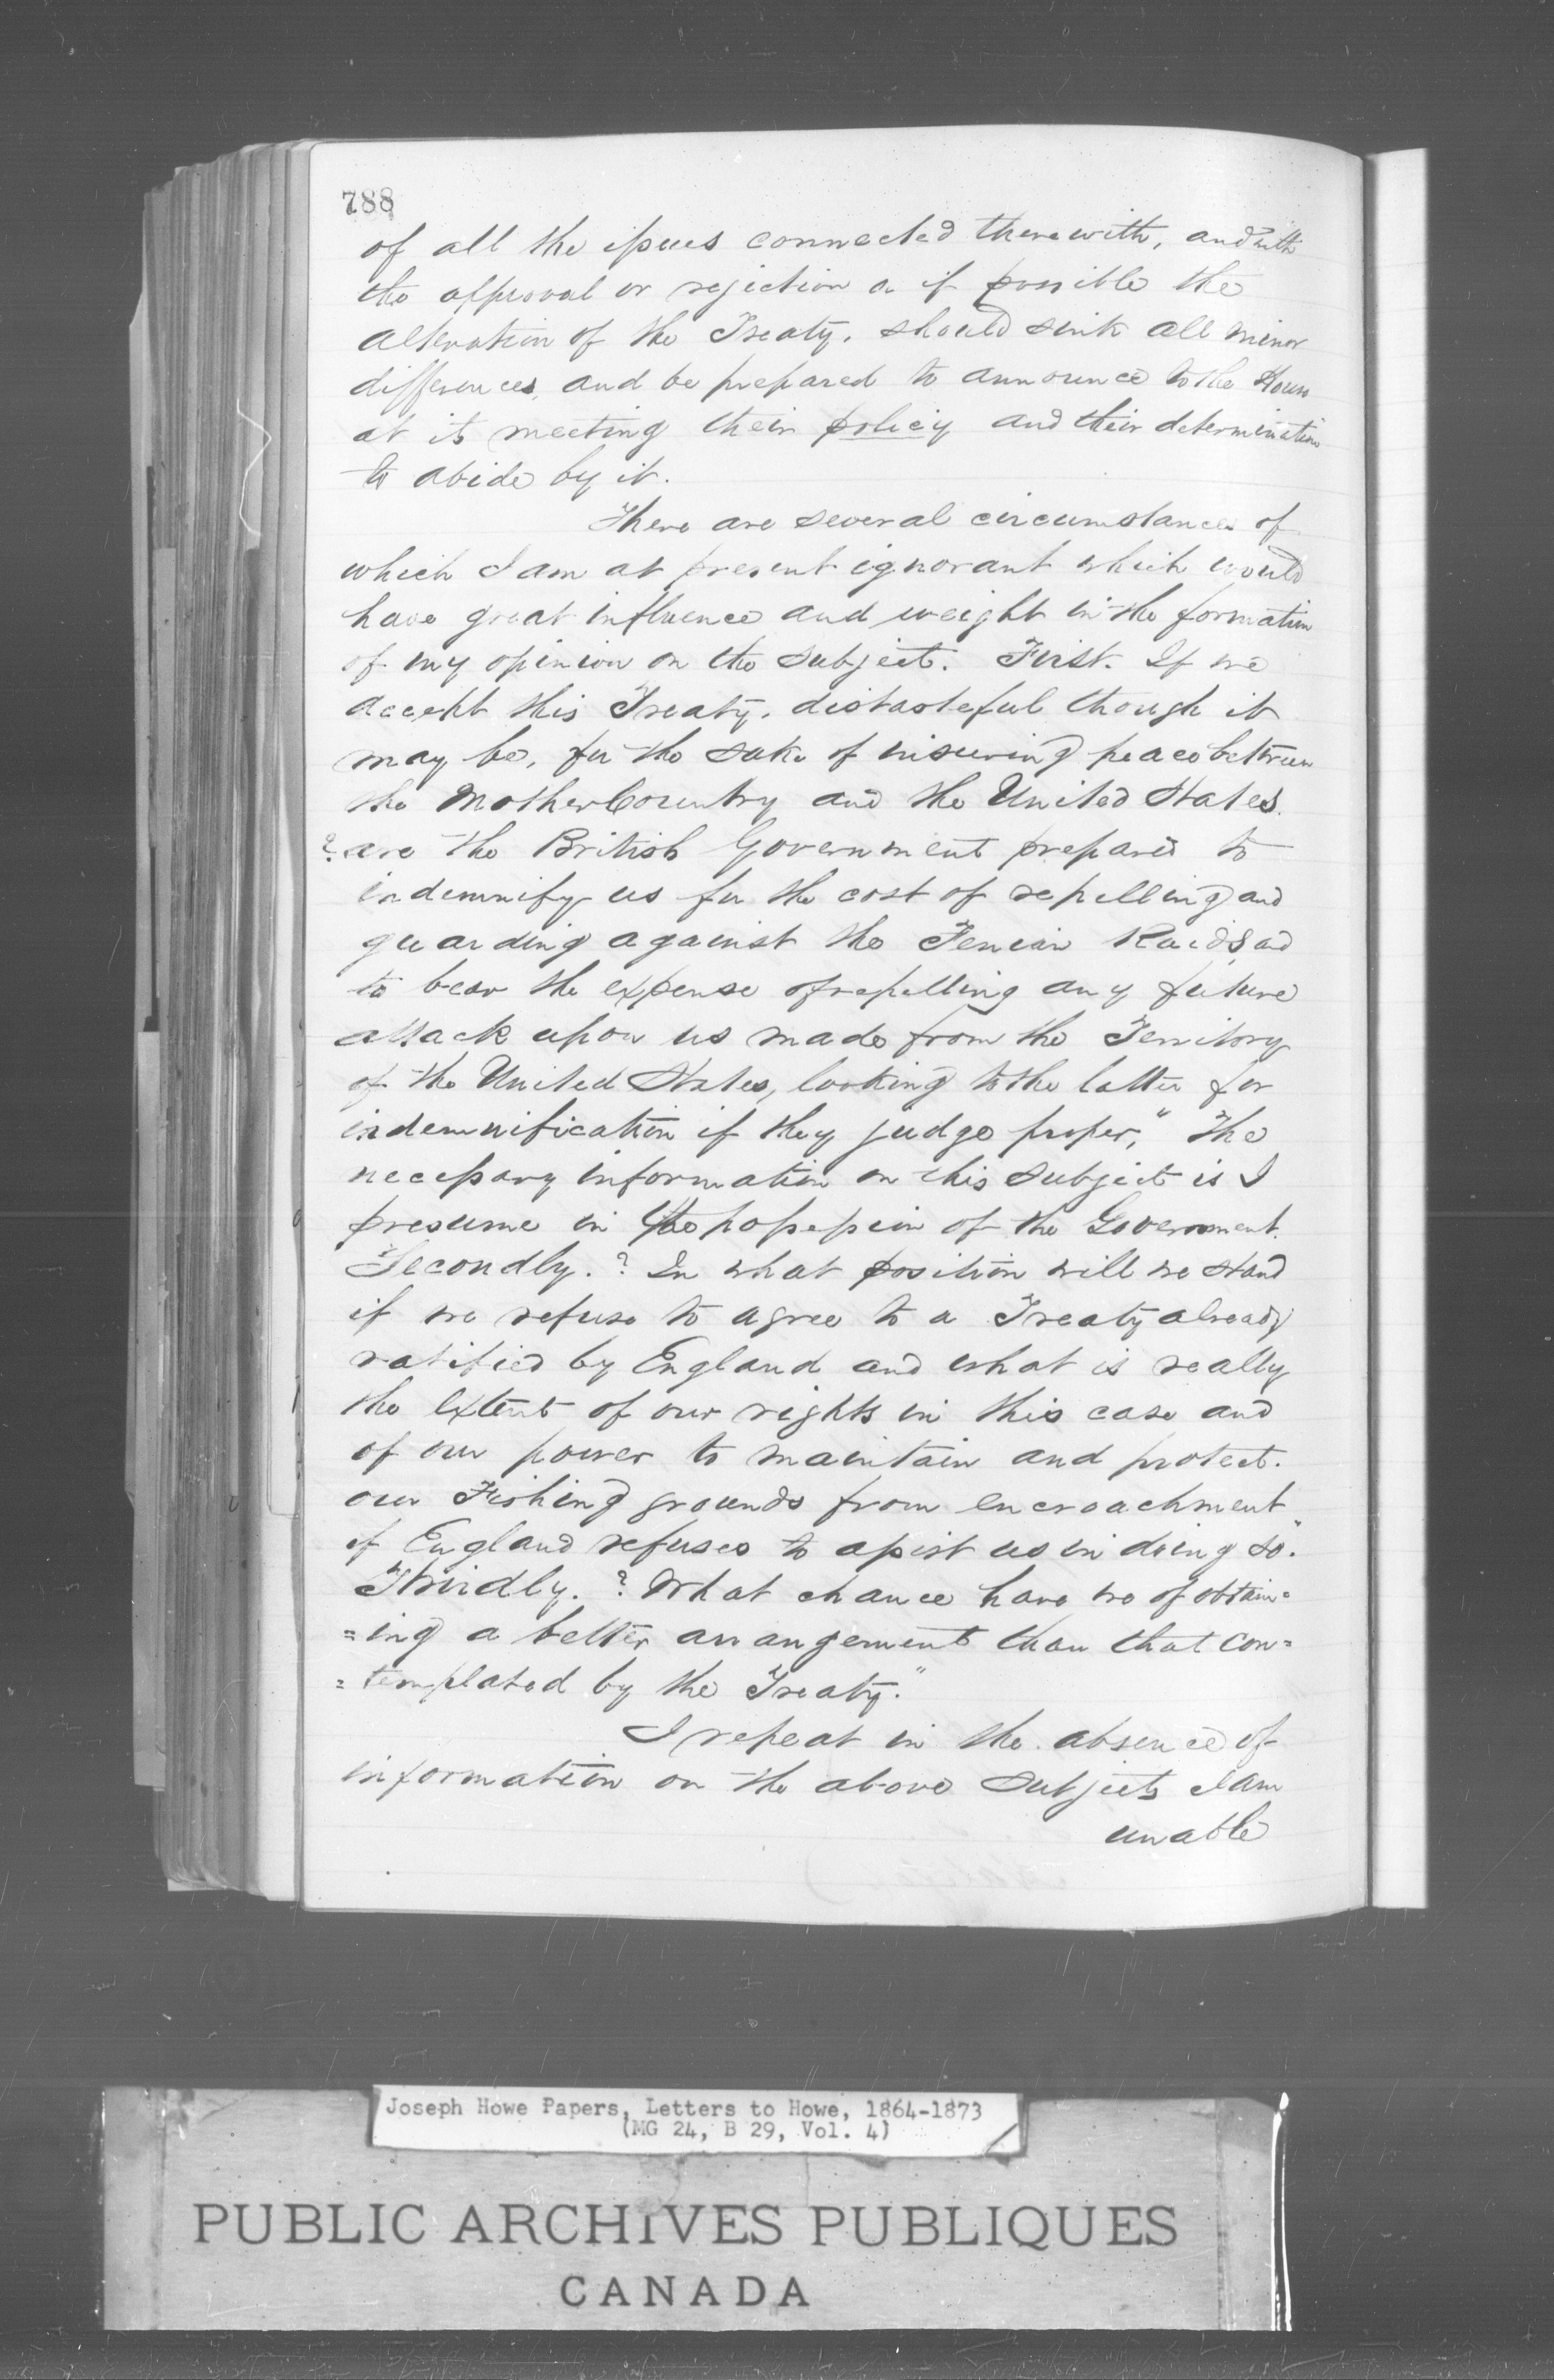 788
of all the issues connected therewith, and with
the approval or rejection or if possible the
alteration of the Treaty, should sink all minor
differences, and be prepared to announce to the House
at its meeting their policy and their determination
to abide by it.
There are several circumstances of
which I am at present ignorant which would
have great influence and weight in the formation
of my opinion on the subject. First. If we
accept this Treaty, distasteful though it
may be, for the sake of insuring peace between
the Mother Country and the United States.
? are the British Government prepared to
indemnify us for the cost of repelling and
guarding against the Fenian Raids, and
to bear the expense of repelling any future
attack upon us made from the Territory
of the United States, looking to the latter for
indemnification if they judge proper," The
necessary information on this subject is I
presume in the possession of the Government.
Secondly. ? In what position will we stand
if we refuse to agree to a Treaty already
ratified by England and what is really
the extent of our rights in this case and
of our power to maintain and protect.
our Fishing grounds from encroachment
if England refuses to assist us in doing so."
Thirdly. ? What chance have we of obtain=
=ing a better arrangement than that con=
=templated by the Treaty."
I repeat in the absence of
information on the above subjects I am
unable
Joseph Howe Papers, Letters to Howe, 1864-1873
(MG 24, B 29, Vol. 4)
PUBLIC ARCHIVES PUBLIQUES
CANADA